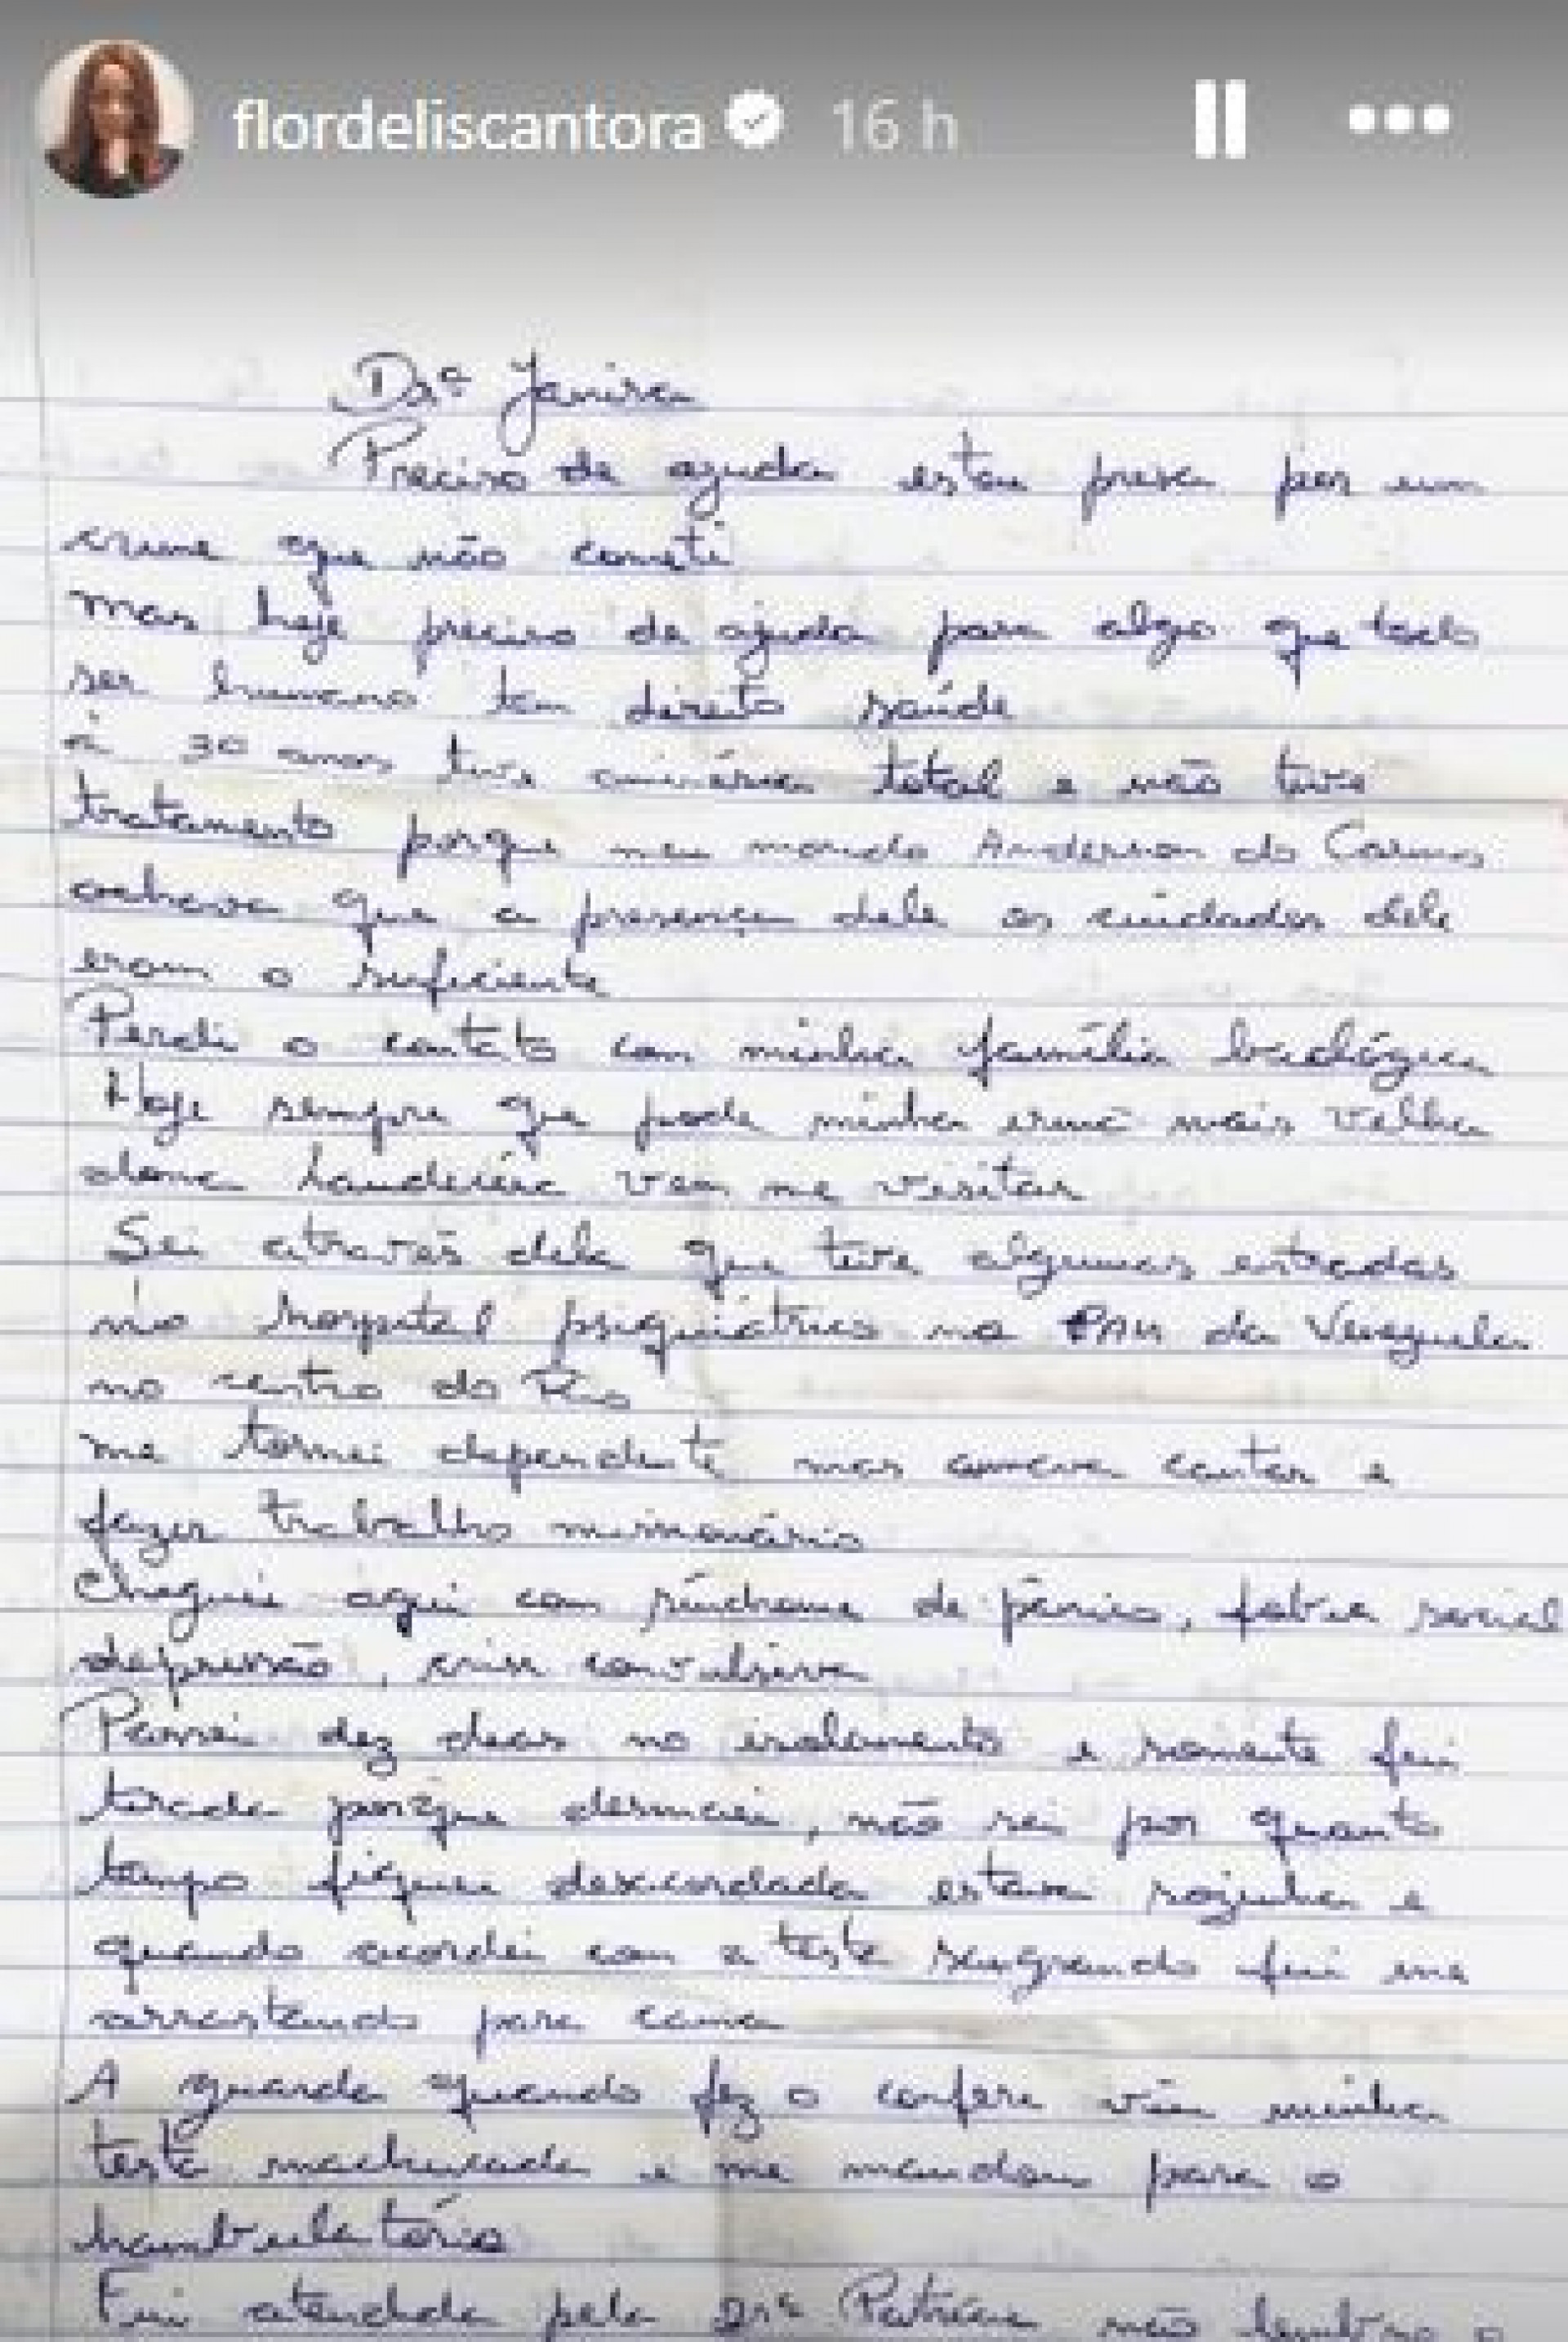 flordeliscantora 16 h
Drª Janira
Preciso de ajuda estou presa por um
crime que não cometi
mas hoje preciso de ajuda para algo que todo
ser humano tem direito saúde
à 30 anos tive amnésia total e não tive
tratamento porque meu marido Anderson do Carmo
achava que a presença dele os cuidados dele
eram o suficiente
Perdi o contato com minha família biológica
Hoje sempre que pode minha irmã mais velha
dona Laudicéia vem me visitar
Sei através dela que tive algumas entradas
no hospital psiquiátrico na PAM da Venezuela
no centro do Rio
me tornei dependente mas amava cantar e
fazer trabalho missionário
Cheguei aqui com síndrome de pânico, fobia social
depressão, crise convulsiva
Passei dez dias no isolamento e somente fui
tirada porque desmaiei, não sei por quanto
tempo fiquei desacordada estava sozinha e
quando acordei com a testa sangrando fui me
arrastando para cama
A guarda quando fez o confere viu minha
testa machucada e me mandou para o
hambulatório
Fui atendida pela Drª Patrícia não lembro o